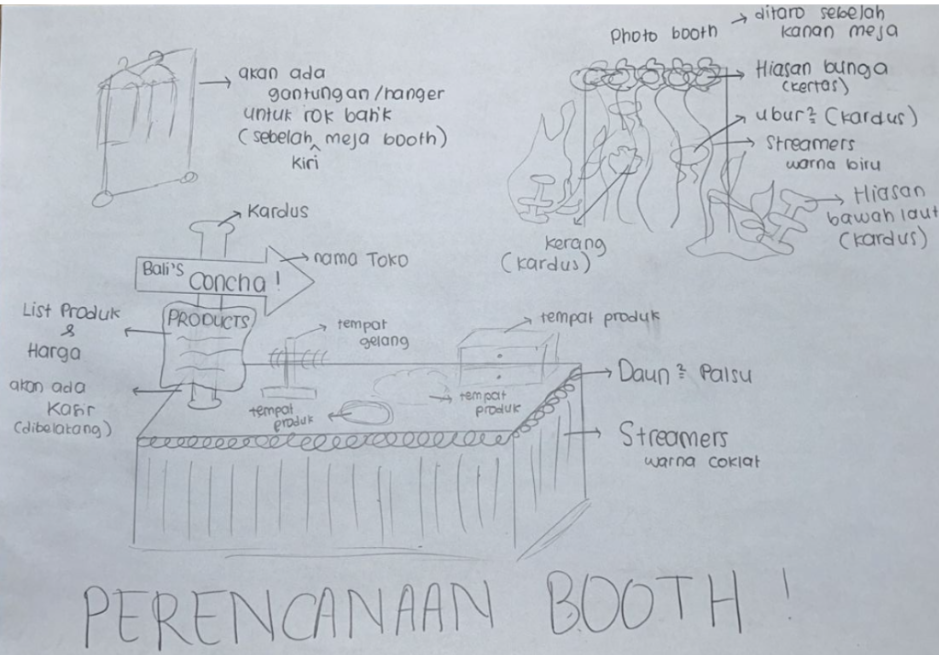 akan ada
gantungan/hanger
untuk rok batik
(sebelah meja booth)
kiri
photo booth
ditaro sebelah
kanan meja
Hiasan bunga
(kertas)
ubur² (kardus)
Streamers
warna biru
Hiasan
bawah laut
(kardus)
kerang
(kardus)
Kardus
nama Toko
Bali's Concha!
PRODUCTS
List Produk
&
Harga
akan ada
Kasir
(dibelakang)
tempat
gelang
tempat produk
tempat
produk
tempat
produk
Daun² Palsu
Streamers
warna coklat
PERENCANAAN BOOTH!